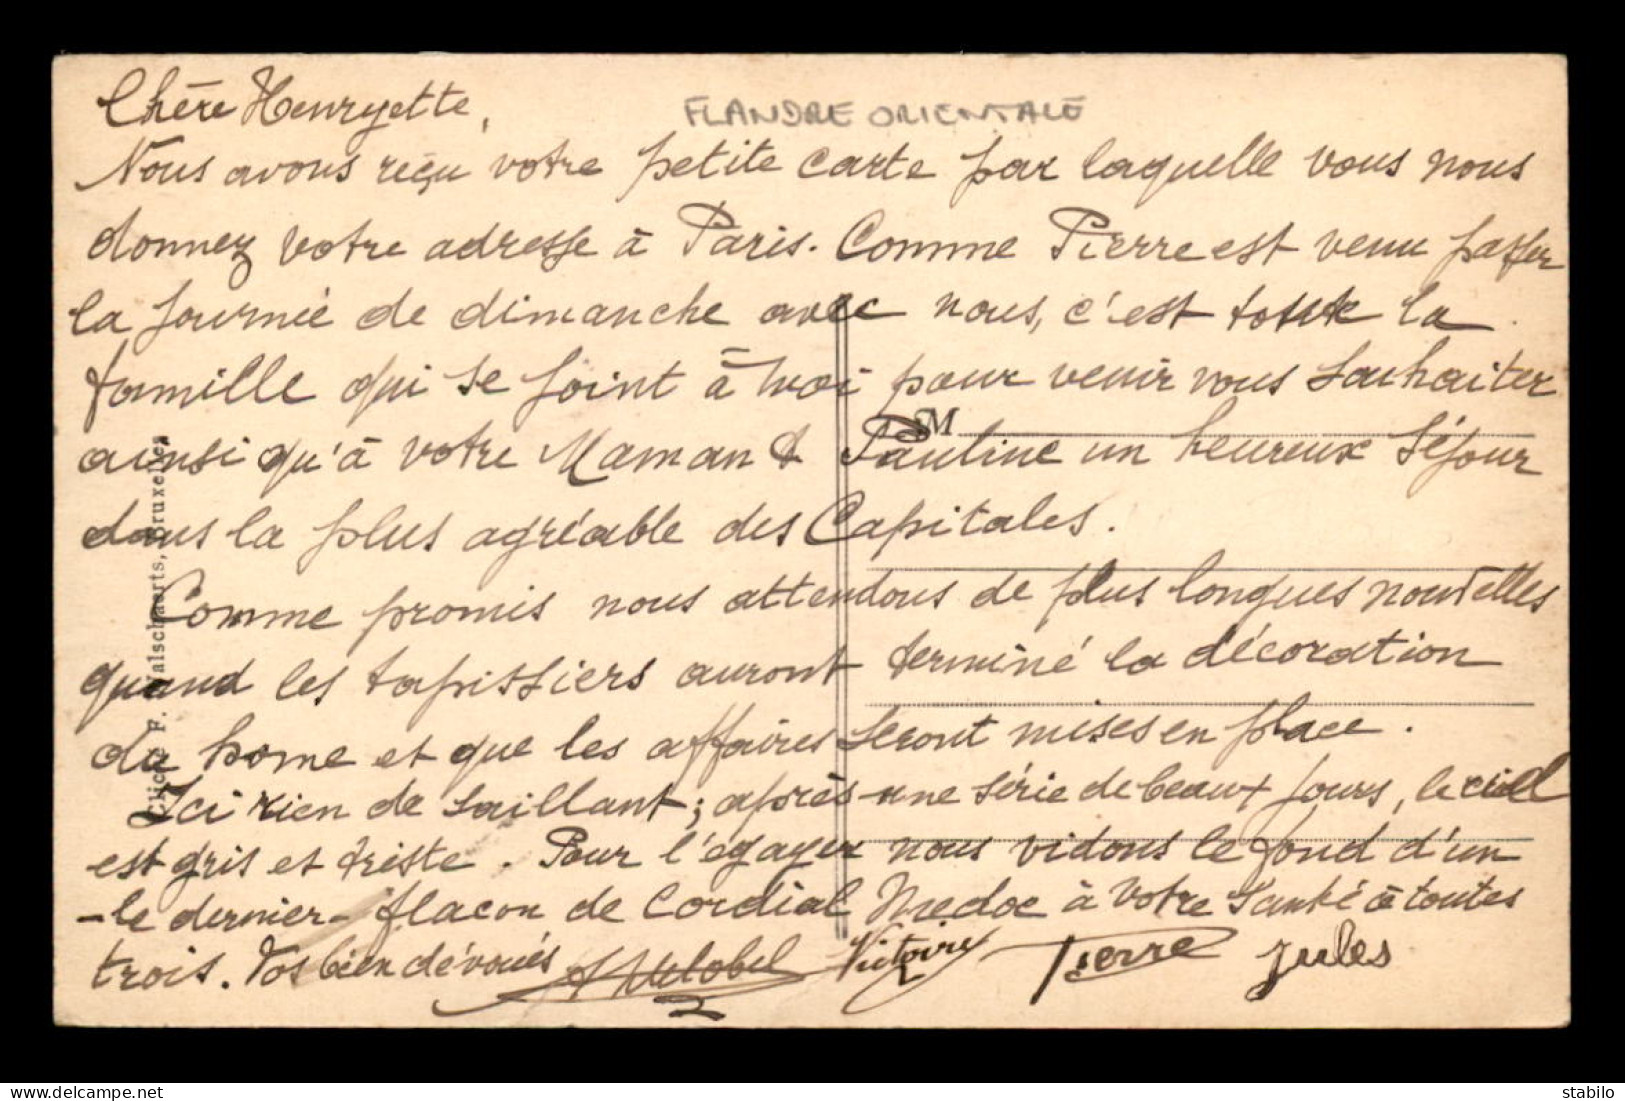 Chère Henryette,
FLANDRE ORIENTALE
Nous avons reçu votre petite carte par laquelle vous nous
donnez votre adresse à Paris. Comme Pierre est venu passer
la journée de dimanche avec nous, c'est toute la
famille qui se joint à moi pour venir vous souhaiter
M
ainsi qu'à votre Maman & Pauline un heureux séjour
dans la plus agréable des Capitales.
Comme promis nous attendons de plus longues nouvelles
quand les tapissiers auront terminé la décoration
du home et que les affaires seront mises en place.
Ici rien de saillant; après une série de beaux jours, le ciel
est gris et triste. Pour l'égayer nous vidons le fond d'un
-le dernier- flacon de Cordial Medoc à votre santé à toutes
trois. Vos bien dévoués Victoire Pierre Jules
Cliché F. Walschaerts, Bruxelles
stabilo